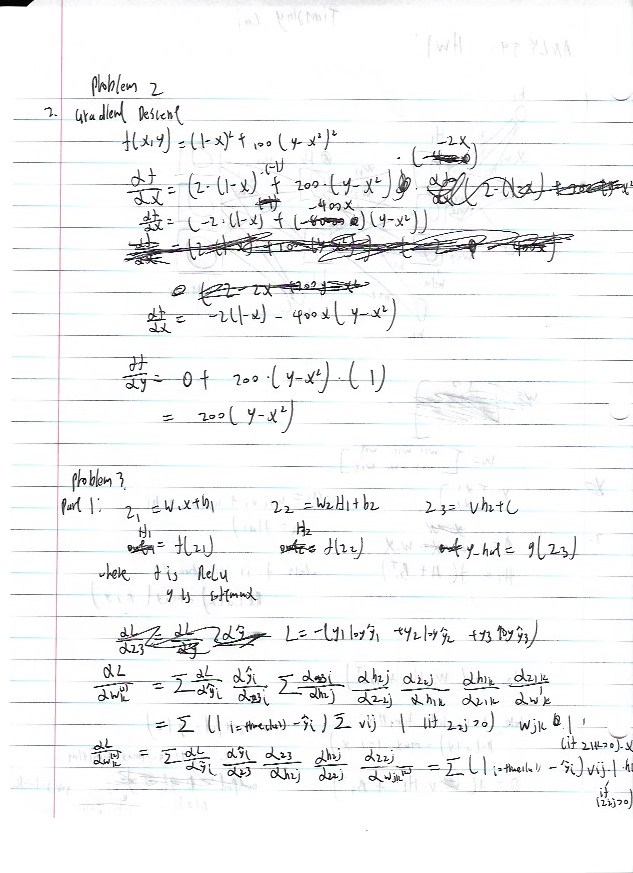 Problem 2
2. Gradient Descent
f(x,y) = (1-x)² + 100 (y-x²)²
df/dx = (2·(1-x)·(-1) + 200·(y-x²))·(-2x)
df/dx = (-2·(1-x) + (-400x)(y-x²))
df/dx = -2(1-x) - 400x(y-x²)
df/dy = 0 + 200·(y-x²)·(1)
= 200(y-x²)
Problem 3.
Part 1: z₁ = w₁x+b₁ z₂ = w₂H₁+b₂ z₃ = vh₂+c
H₁ = f(z₁) H₂ = f(z₂) y_hat = g(z₃)
where f is Relu
g is softmax
L = -(y₁logŷ₁ + y₂logŷ₂ + y₃logŷ₃)
dL/dw¹k = Σ dL/dŷi dŷi/dz3i Σ dz3i/dh2j dh2j/dz2j dz2j/dh1k dh1k/dz1k dz1k/dw'k
= Σ (1 i=trueclass - ŷi) Σ vij 1 (if z2j>0) wjk 1 (if z1k>0)·x
dL/dw = Σ dL/dŷi dŷi/dz3 dz3/dh2j dh2j/dz2j dz2j/dwjk = Σ (1 i=trueclass - ŷi) vij·1 if (z2j>0)